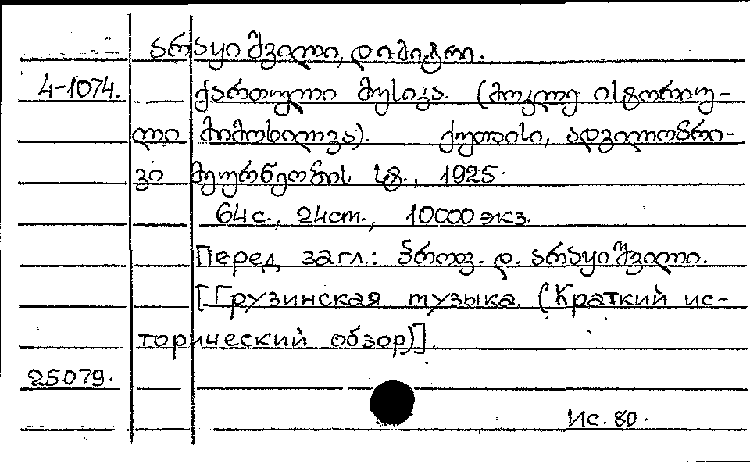 არაყიშვილი, დიმიტრი.
4-1074. ქართული მუსიკა. (მოკლე ისტორიუ-
ლი მიმოხილვა). ქუთისი, ადგილობრი-
ვი მეურნეობის სტ., 1925.
64 с., 24 см., 10000 экз.
Перед загл.: პროფ. დ. არაყიშვილი.
[Грузинская музыка. (Краткий ис-
торический обзор)].
25079.
Ис. 80.